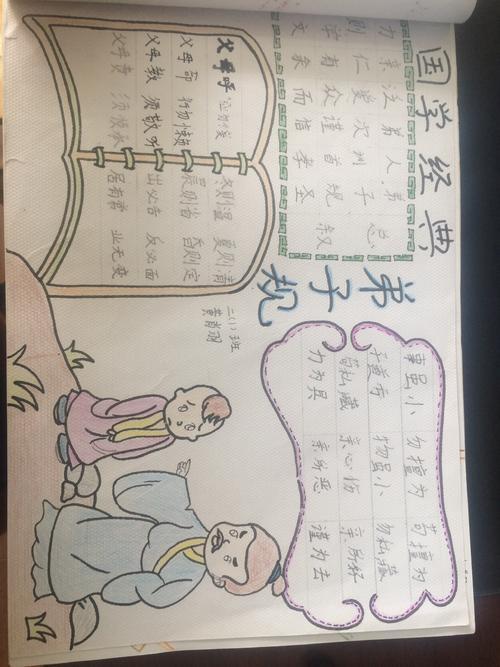 国学经典
总叙
弟子规圣
人训首孝
弟次谨信
泛爱众而
亲仁有余
力则学文
弟子规
父母呼 应勿缓
父母命 行勿懒
父母教 须敬听
父母责 须顺承
冬则温 夏则清
晨则省 昏则定
出必告 反必面
居有常 业无变
三(1)班
事虽小 勿擅为 苟擅为
子道亏 物虽小 勿私藏
苟私藏 亲心伤 亲所好
力为具 亲所恶 谨为去